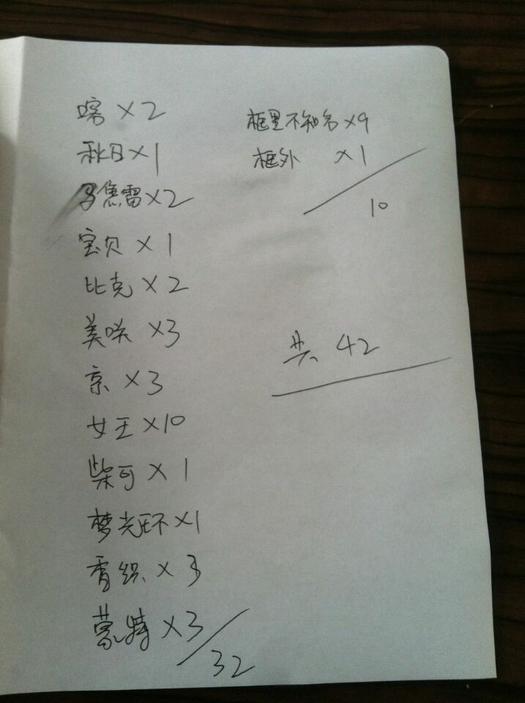 喀×2
秋日×1
多焦雷×2
宝贝×1
比克×2
美咲×3
京×3
女王×10
柴可×1
梦光环×1
香织×3
蒙特×3
32
框里不知名×9
框外 ×1
10
共 42